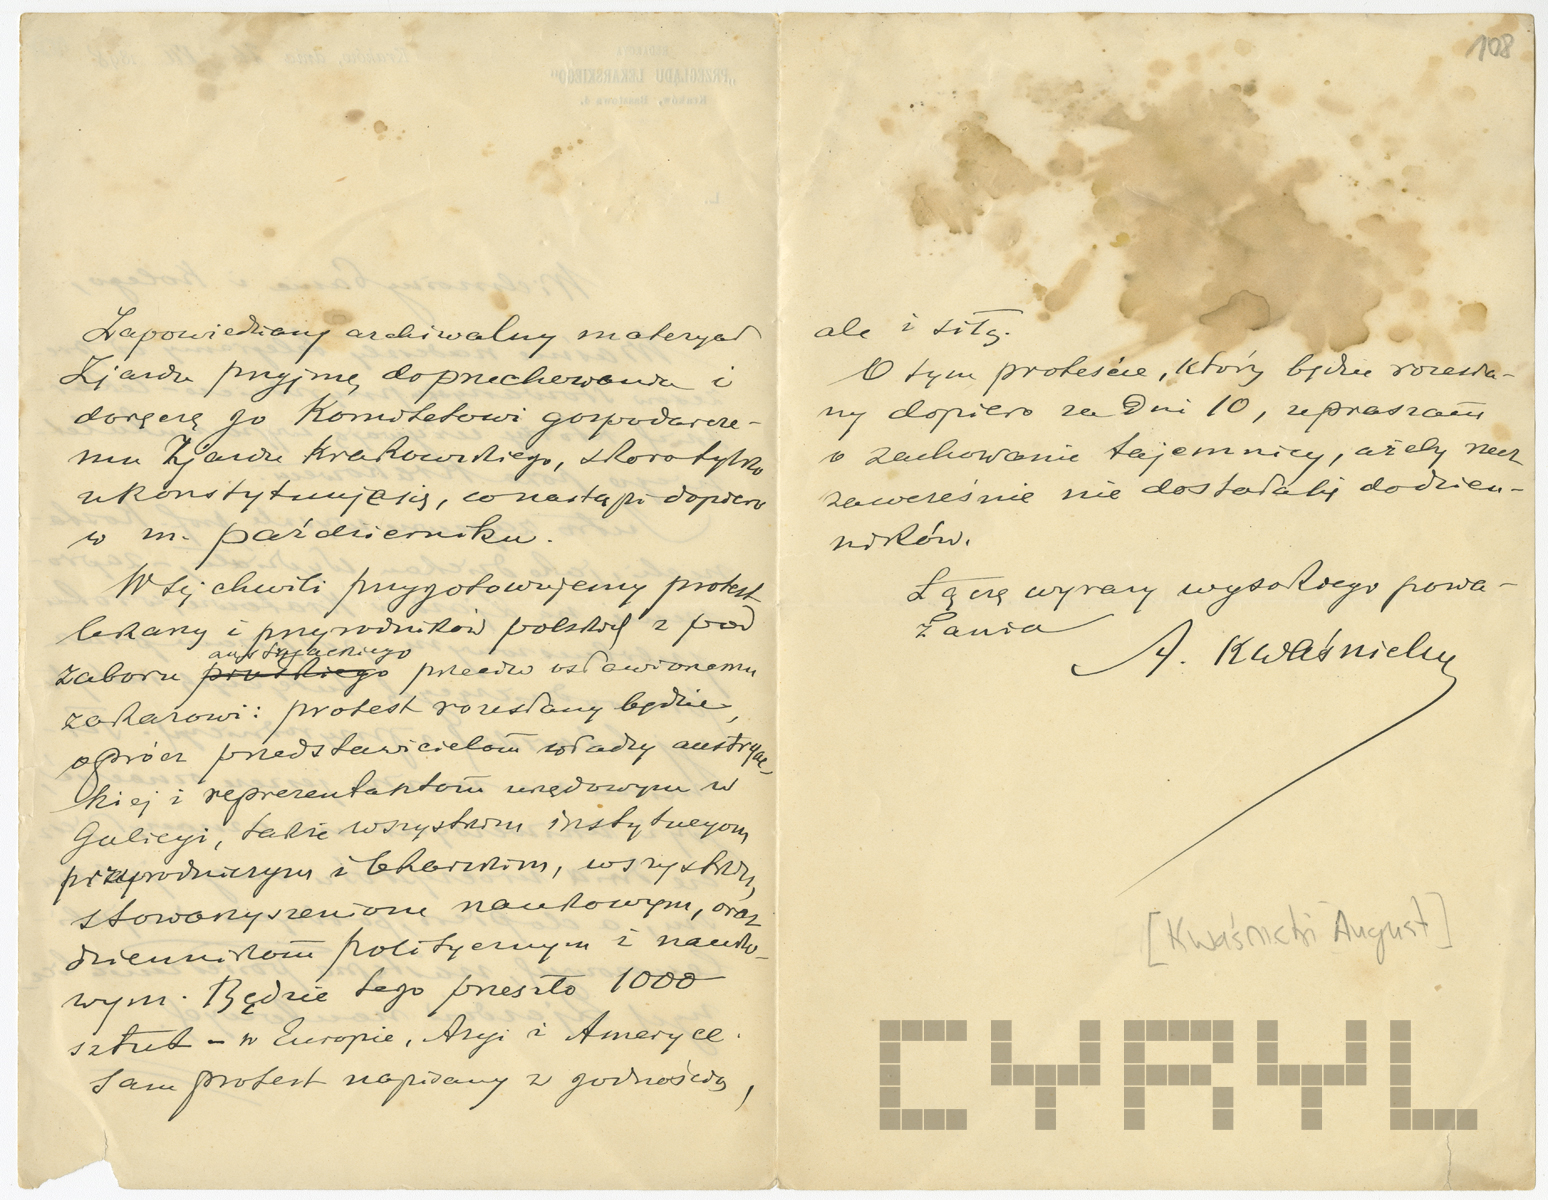 Zapowiedziany archiwalny materyał
Zjazdu przyjmę do przechowania i
doręczę go Komitetowi gospodarcze-
mu Zjazdu Krakowskiego, skoro tylko
ukonstytuuje się, co nastąpi dopiero
w m. październiku.
W tej chwili przygotowujemy protest
lekarzy i przyrodników polskich z pod
austryackiego
zaboru pruskiego przeciw osławionemu
zakazowi: protest rozesłany będzie,
oprócz przedstawicielom władzy austryac-
kiej i reprezentantom urzędowym w
Galicyi, także wszystkim instytucyom
przyrodniczym i lekarskim, wszystkim
stowarzyszeniom naukowym, oraz
dziennikom politycznym i nauko-
wym. Będzie tego przeszło 1000
sztuk – w Europie, Azyi i Ameryce.
Sam protest napisany z godnością,
108
ale i siłą.
O tym proteście, który będzie rozesła-
ny dopiero za dni 10, upraszam
o zachowanie tajemnicy, ażeby zbyt
zawcześnie nie dostał się do dzien-
ników.
Łączę wyrazy wysokiego powa-
żania
A. Kwaśnicki
[Kwaśnicki August]
CYRYL